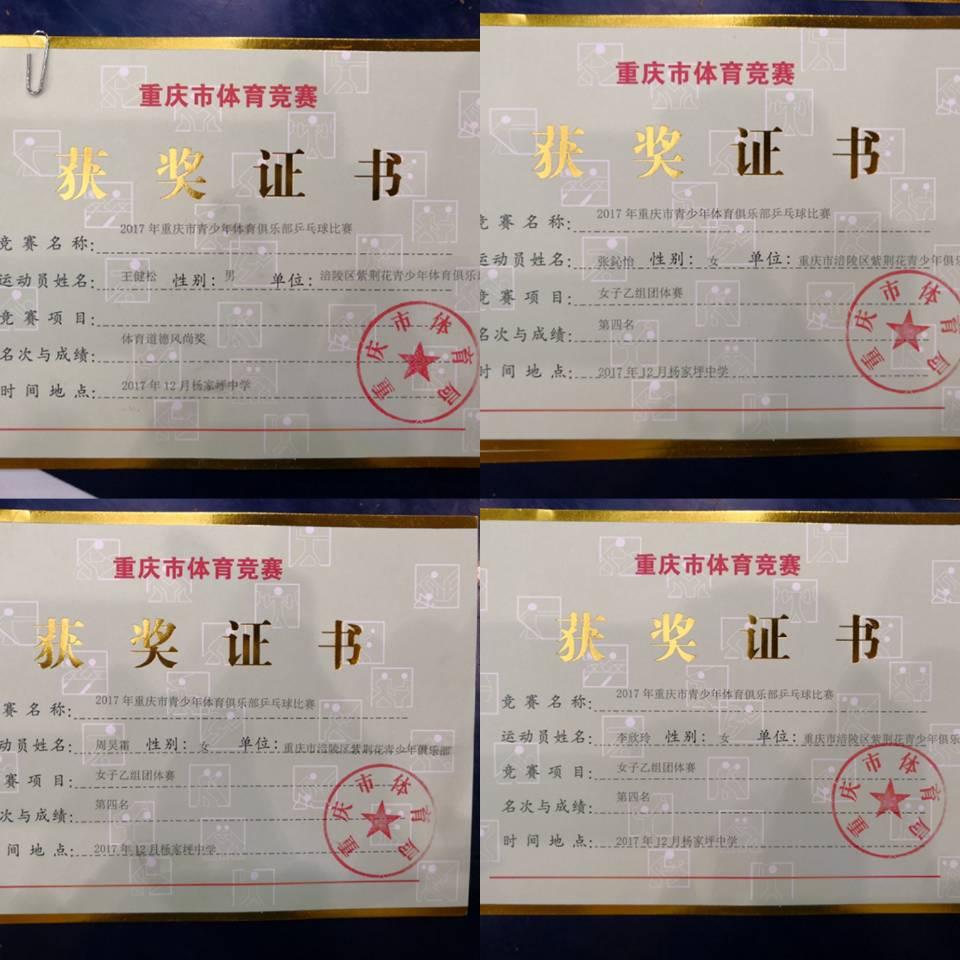 重庆市体育竞赛
获奖证书
竞赛名称: 2017年重庆市青少年体育俱乐部乒乓球比赛
运动员姓名: 王健松 性别: 男 单位: 涪陵区紫荆花青少年体育俱乐
竞赛项目:
名次与成绩: 体育道德风尚奖
时间地点: 2017年12月杨家坪中学
重庆市体育局
重庆市体育竞赛
获奖证书
竞赛名称: 2017年重庆市青少年体育俱乐部乒乓球比赛
运动员姓名: 张鈊怡 性别: 女 单位: 重庆市涪陵区紫荆花青少年俱乐
竞赛项目: 女子乙组团体赛
名次与成绩: 第四名
时间地点: 2017年12月杨家坪中学
重庆市体育局
重庆市体育竞赛
获奖证书
赛名称: 2017年重庆市青少年体育俱乐部乒乓球比赛
动员姓名: 周昊霜 性别: 女 单位: 重庆市涪陵区紫荆花青少年俱乐部
赛项目: 女子乙组团体赛
次与成绩: 第四名
间地点: 2017年12月杨家坪中学
重庆市体育局
重庆市体育竞赛
获奖证书
竞赛名称: 2017年重庆市青少年体育俱乐部乒乓球比赛
运动员姓名: 李欣玲 性别: 女 单位: 重庆市涪陵区紫荆花青少年俱乐
竞赛项目: 女子乙组团体赛
名次与成绩: 第四名
时间地点: 2017年12月杨家坪中学
重庆市体育局